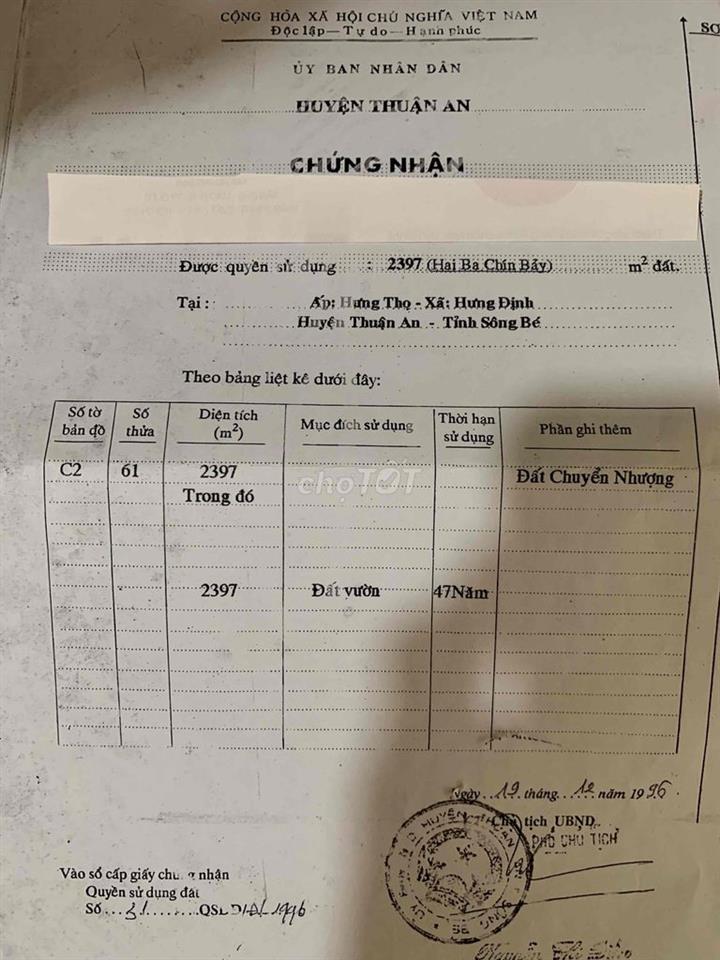 CỘNG HÒA XÃ HỘI CHỦ NGHĨA VIỆT NAM
Độc lập — Tự do — Hạnh phúc
SƠ
ỦY BAN NHÂN DÂN
HUYỆN THUẬN AN
CHỨNG NHẬN
Được quyền sử dụng : 2397 (Hai Ba Chín Bảy) m² đất.
Tại : Ấp: Hưng Thọ - Xã: Hưng Định
Huyện Thuận An - Tỉnh Sông Bé
Theo bảng liệt kê dưới đây:
Số tờ bản đồ
Số thửa
Diện tích (m²)
Mục đích sử dụng
Thời hạn sử dụng
Phần ghi thêm
C2 61 2397 Đất Chuyển Nhượng
Trong đó
chợTỐT
2397 Đất vườn 47Năm
Ngày 19 tháng 12 năm 1996
Chủ tịch UBND
PHÓ CHỦ TỊCH
Vào sổ cấp giấy chứng nhận
Quyền sử dụng đất
Số 31 QSDĐ 1996